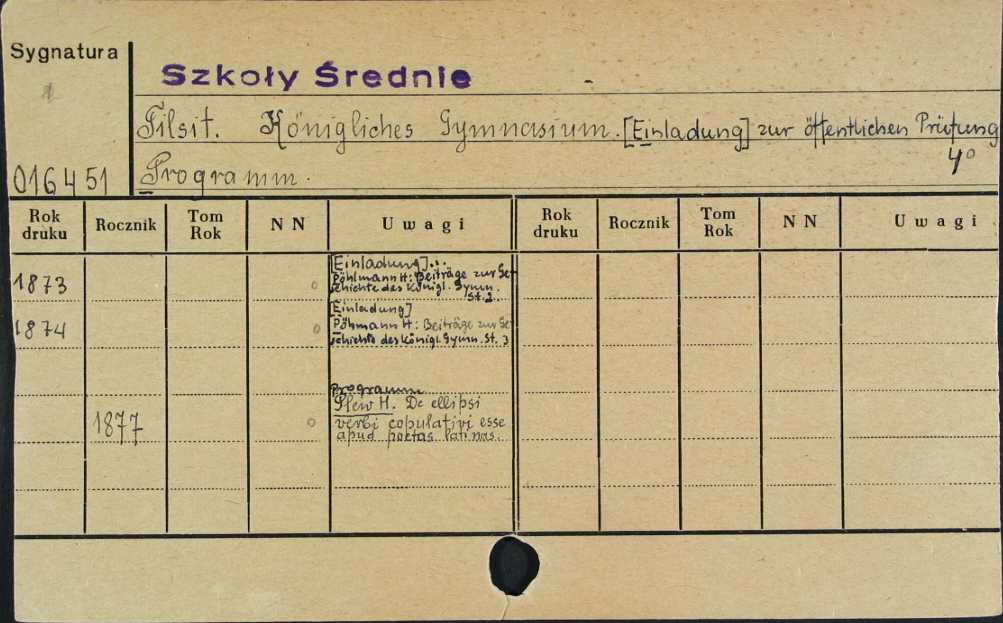 Sygnatura
Szkoły Średnie
Tilsit. Königliches Gymnasium. [Einladung] zur öffentlichen Prüfung
4°
016451 Programm.
Rok druku Rocznik Tom Rok N N Uwagi Rok druku Rocznik Tom Rok N N Uwagi
[Einladung]...
1873 Pöhlmann H: Beiträge zur Ge-
schichte des Königl. Gymn.
St. 2.
[Einladung]
1874 Pöhmann H: Beiträge zur Ge-
schichte des Königl. Gymn. St. 3
Programm
Plew H. De ellipsi
1877 verbi copulativi esse
apud poetas latinas.